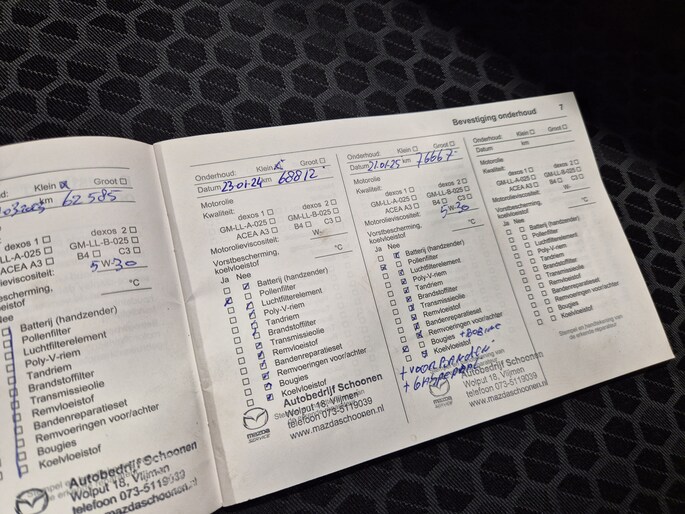 Klein Groot
km 62585
dexos 1 dexos 2
GM-LL-B-025
ACEA A3 B4 C3
5 W-30
°C
Batterij (handzender)
Pollenfilter
Luchtfilterelement
Poly-V-riem
Tandriem
Brandstoffilter
Transmissieolie
Remvloeistof
Bandenreparatieset
Remvoeringen voor/achter
Bougies
Koelvloeistof
Autobedrijf Schoonen
Wolput 18, Vlijmen
telefoon 073-5119039
www.mazdaschoonen.nl
Onderhoud: Klein Groot
Datum 23-01-24 km 68812
Motorolie
Kwaliteit: dexos 1 dexos 2
GM-LL-A-025 GM-LL-B-025
ACEA A3 B4 C3
Motorolieviscositeit: W-
Vorstbescherming,
koelvloeistof °C
Ja Nee
Batterij (handzender)
Pollenfilter
Luchtfilterelement
Poly-V-riem
Tandriem
Brandstoffilter
Transmissieolie
Remvloeistof
Bandenreparatieset
Remvoeringen voor/achter
Bougies
Koelvloeistof
Autobedrijf Schoonen
Wolput 18, Vlijmen
telefoon 073-5119039
www.mazdaschoonen.nl
mazda
SERVICE
Bevestiging onderhoud 7
Onderhoud: Klein Groot
Datum 21-01-25 km 76667
Motorolie
Kwaliteit: dexos 1 dexos 2
GM-LL-A-025 GM-LL-B-025
ACEA A3 B4 C3
Motorolieviscositeit: 5W-30
Vorstbescherming,
koelvloeistof °C
Ja Nee
Batterij (handzender)
Pollenfilter
Luchtfilterelement
Poly-V-riem
Tandriem
Brandstoffilter
Transmissieolie
Remvloeistof
Bandenreparatieset
Remvoeringen voor/achter
Bougies + Bobine
Koelvloeistof
Autobedrijf Schoonen
Wolput 18, Vlijmen
telefoon 073-5119039
www.mazdaschoonen.nl
mazda
SERVICE
Onderhoud: Klein Groot
Datum km
Motorolie
Kwaliteit: dexos 1 dexos 2
GM-LL-A-025 GM-LL-B-025
ACEA A3 B4 C3
Motorolieviscositeit: W-
Vorstbescherming,
koelvloeistof °C
Ja Nee
Batterij (handzender)
Pollenfilter
Luchtfilterelement
Poly-V-riem
Tandriem
Brandstoffilter
Transmissieolie
Remvloeistof
Bandenreparatieset
Remvoeringen voor/achter
Bougies
Koelvloeistof
Stempel en handtekening van
de erkende reparateur